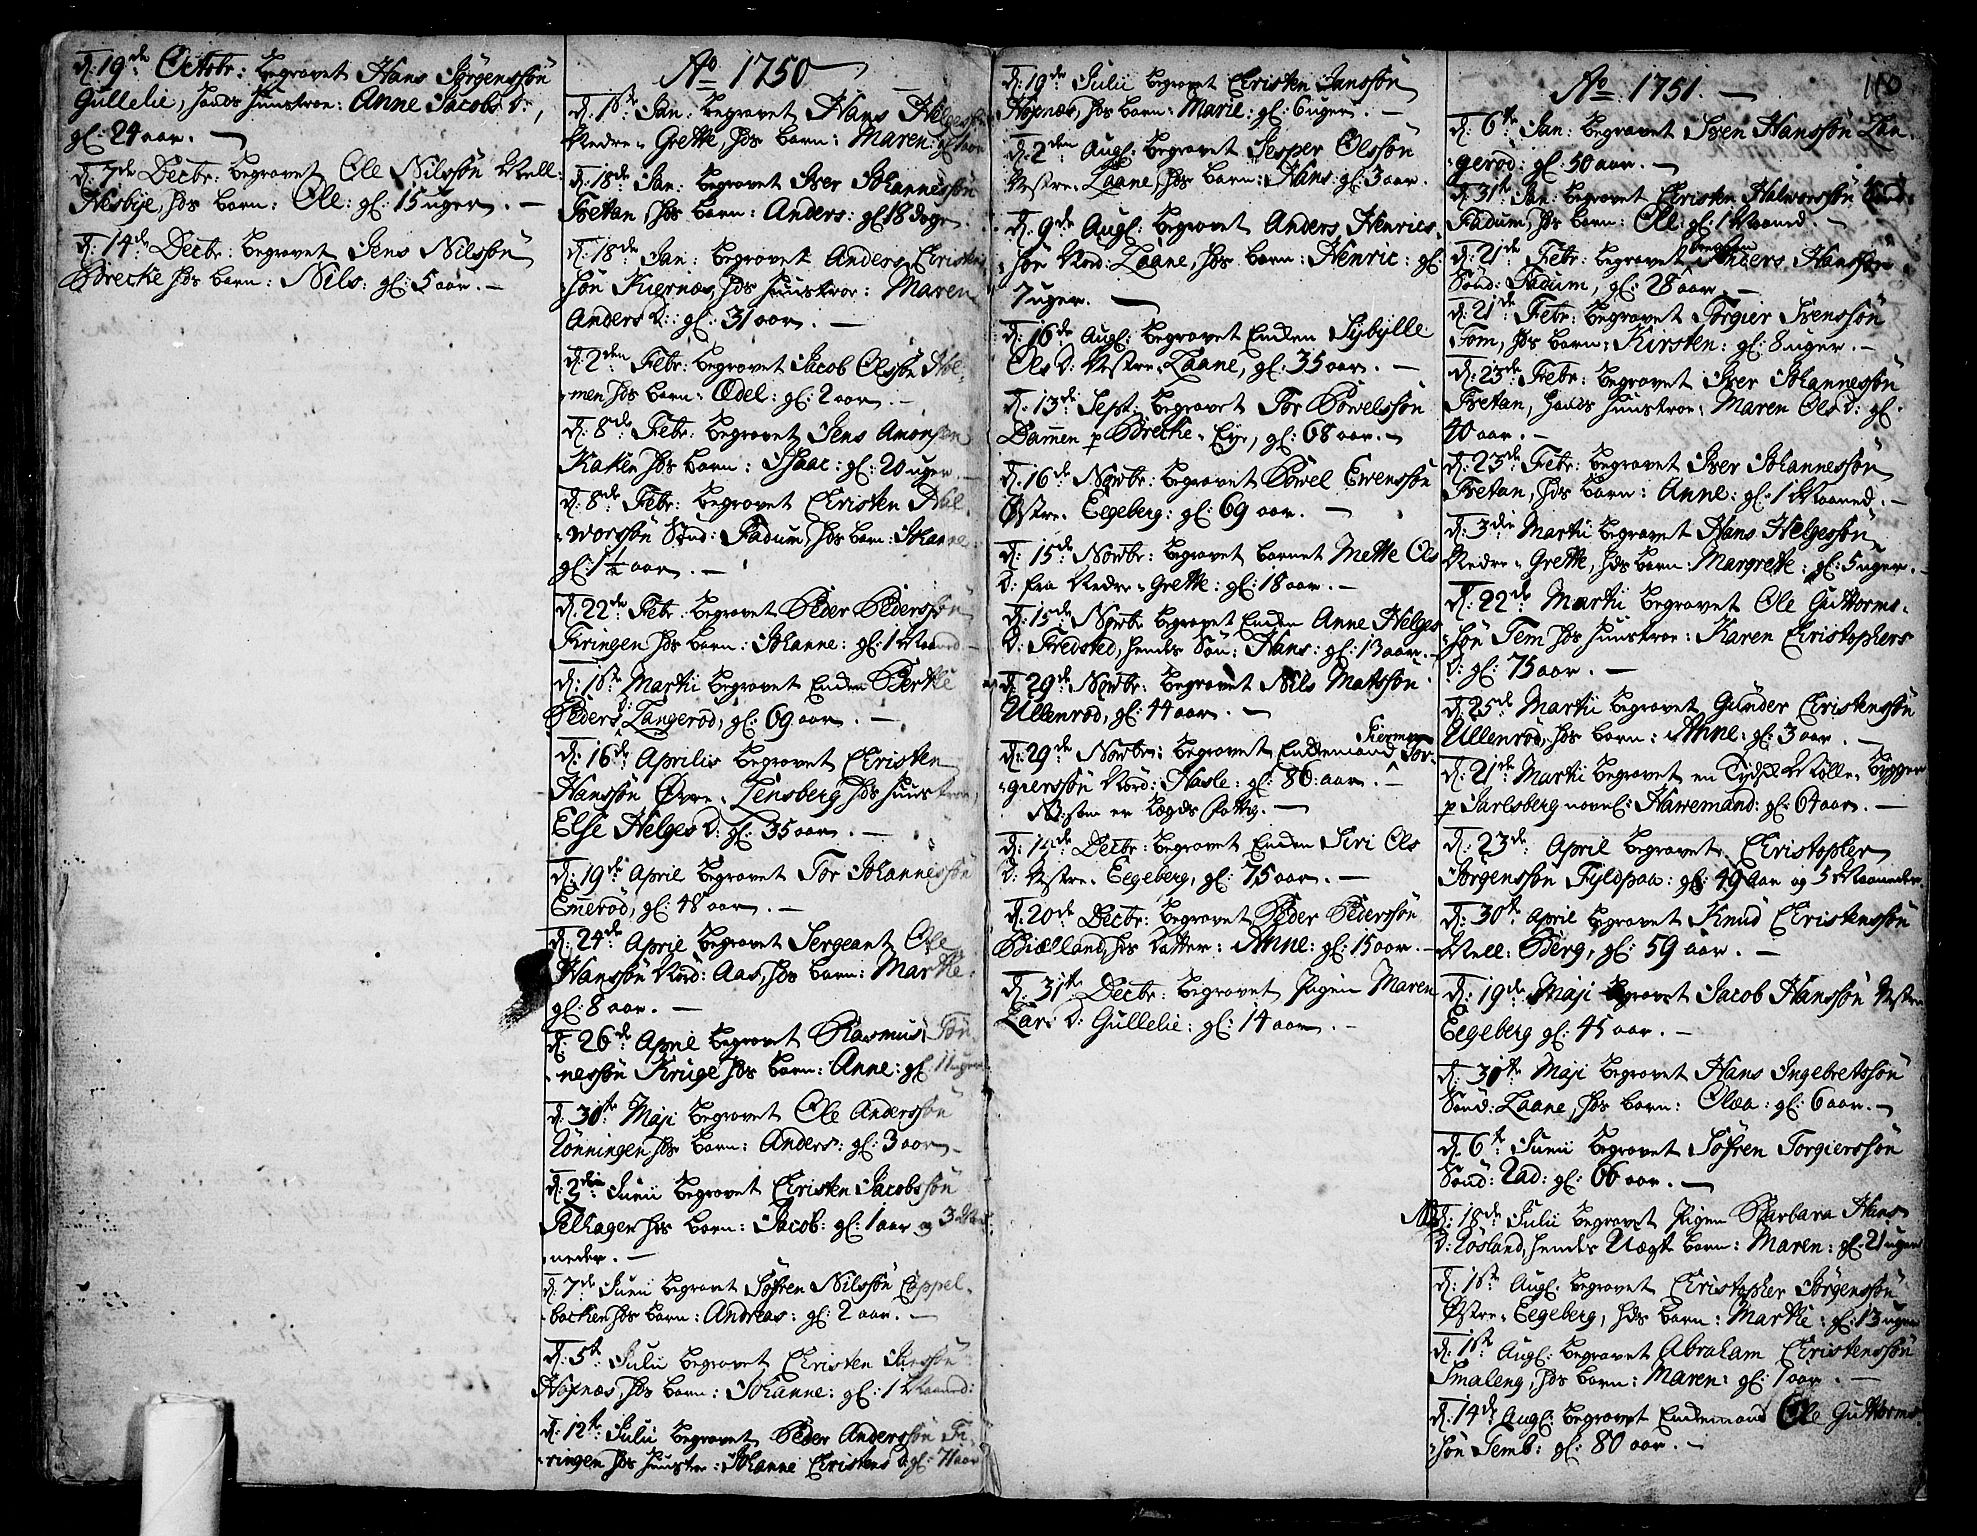 d: 19de Octobr: begravet Hans Jörgenssön
Gullelie, hands hustroe: Anne Jacobs D:,
gl: 24 aar. —
d: 7de Decbr: begravet Ole Nilssön Mell:
Hesbÿe, hds barn: Ole: gl: 15 uger. —
d: 14de Decbr: begravet Jens Nilssön
Brecke hds barn: Nils: gl: 5 aar. —
Ao 1750
d: 1ste Jan: begravet Hans Helgess:
Nedre Grette, hds barn: Maren: gl: 1 aar
d: 18de Jan: begravet Iver Johannessön
Fretan, hds barn: Anders: gl: 18 dage.
d: 18de Jan: begravet Anders Christen
sön Kiernæs, hds hustroe: Maren
Anders D: gl: 31 aar. —
d: 2den Febr: begravet Jacob Olssön Hol-
men hds barn: Odel: gl: 2 aar. —
d: 8de Febr: begravet Jens Amonsen
Kaken hds barn: Isaac: gl: 20 uger. —
d: 8de Febr: begravet Christen Hal-
worssön Sönd: Fadum, hds barn: Johanne:
gl: 1½ aar. —
d: 22de Febr: begravet Peder Pederssön
Firingen hds barn: Johanne: gl: 1 Maaned —
d: 1ste Martii begravet Enken Berthe
Peders D: Langeröd, gl: 69 aar. —
d: 16de Aprilis begravet Christen
Hanssön Övre Lensberg hds hustroe,
Else Helges D: gl: 35 aar. —
d: 19de April begravet Tor Johannessön
Emeröd, gl: 48 aar. —
d: 24de April begravet Sergeant Ole
Hanssön Nord: Aas, hds barn: Marthe:
gl: 8 aar. —
d: 26de April begravet Rasmus Tön-
nessön Kruge hds barn: Anne: gl: 11 uger
d: 30te Maji begravet Ole Anderssön
Rönningen hds barn: Anders: gl: 3 aar —
d: 3die Junii begravet Christen Jacobssön
Selhagen hds barn: Jacob: gl: 1 aar og 3 Maa-
neder. —
d: 7de Junii begravet Söfren Nilssön Cappel-
backen hds barn: Andreas: gl: 2 aar. —
d: 5te Julii begravet Christen Jenssön
Hoxnæs, hds barn: Johanne: gl: 1 Maaned:
d: 12te Julii begravet Peder Anderssön Fi-
ringen hds hustroe: Johanne Christens D: gl: 71 aar
d: 19de Julii begravet Christen Janssön
Hoxnæs, hds barn: Marie: gl: 6 uger. —
d: 2den Augl: begravet Jesper Olssön
Vestre Laane, hds barn: Hans: gl: 3 aar.
d: 9de Augl: begravet Anders Henrics-
sön Nord: Laane, hds barn: Henric: gl:
7 uger. —
d: 16de Augl: begravet Enken Sybylle
Ols D: Vestre Laane, gl: 35 aar. —
d: 13de Sept: begravet Tor Powelssön
Dammen p Brecke-Eye, gl: 68 aar. —
d: 16de Novbr: begravet Powel Ewenssön
Östre Eegeberg: gl: 69 aar. —
d: 15de Novbr: begravet barnet Mette Ols
D: fra Nedre Grette: gl: 18 aar. —
d: 15de Novbr: begravet Enken Anne Helges
D: Fredsted, hendes Sön: Hans: gl: 13 aar. —
d: 29de Novbr: begravet Nils Matssön
Ullenröd, gl: 44 aar. —
d: 29de Novbr: begravet Enkemand Tor-
gierssön Nord: Hasle: gl: 86 aar. —
NB: som er Lægds fattig. —
d: 14de Decbr: begravet Enken Siri Ols
D: Vestre Eegeberg, gl: 75 aar. —
d: 20de Decbr: begravet Peder Pederssön
Biælland, hds datter: Anne: gl: 15 aar. —
d: 31te Decbr: begravet Pigen Maren
Lars D: Gullelie: gl: 14 aar. —
110
Ao 1751. —
d: 6te Jan: begravet Sven Hanssön Lan-
geröd: gl: 50 aar. —
d: 31te Jan: begravet Christen Halworssön Sönd:
Fadum, hds barn: Ole: gl: 1 Maaned. —
d: 21de Febr: begravet Anders Hanssön
Sönd: Fadum, gl: 28 aar. —
d: 21de Febr: begravet Torgier Svenssön
Tom, hds barn: Kirsten: gl: 8 uger. —
d: 23de Febr: begravet Iver Johannessön
Fretan, hands hustroe: Maren Ols D: gl:
40 aar. —
d: 23de Febr: begravet Iver Johannessön
Fretan, hds barn: Anne: gl: 1 Maaned. —
d: 3die Martii begravet Hans Helgessön
Nedre Grette, hds barn: Margrethe: gl: 5 uger. —
d: 22de Martii begravet Ole Guttorms-
sön Tem hds hustroe: Karen Christophers
D: gl: 75 aar. —
d: 25de Martii begravet Gunder Christenssön
Ullenröd, hds barn: Anne: gl: 3 aar. —
d: 21de Martii begravet en Tydsk Mölle-Bygger
p Jarlsberg navnl: Hawemand: gl: 64 aar. —
d: 23de April begravet Christopher
Jörgenssön Fyldpaa: gl: 49 aar og 5 Maaneder.
d: 30te April begravet Knud Christenssön
Mell: Berg, gl: 59 aar. —
d: 19de Maji begravet Jacob Hanssön Vestre
Eegeberg gl: 45 aar. —
d: 30te Maji begravet Hans Ingebretssön
Sönd: Laane, hds barn: Olea: gl: 6 aar. —
d: 6te Junii begravet Söfren Torgierssön
Sönd: Rad: gl: 66 aar. —
NB d: 18de Julii begravet Pigen Barbara Hans
D: Rosland, hendes Uægte barn: Maren: gl: 21 uger
d: 1ste Augl: begravet Christopher Jörgenssön
Östre Eegeberg, hds barn: Marthe: gl: 13 uger
d: 1ste Augl: begravet Abraham Christenssön
Smaleng, hds barn: Maren: gl: 1 aar. —
d: 14de Augl: begravet Enkemand Ole Guttorms-
sön Temb: gl: 80 aar. —